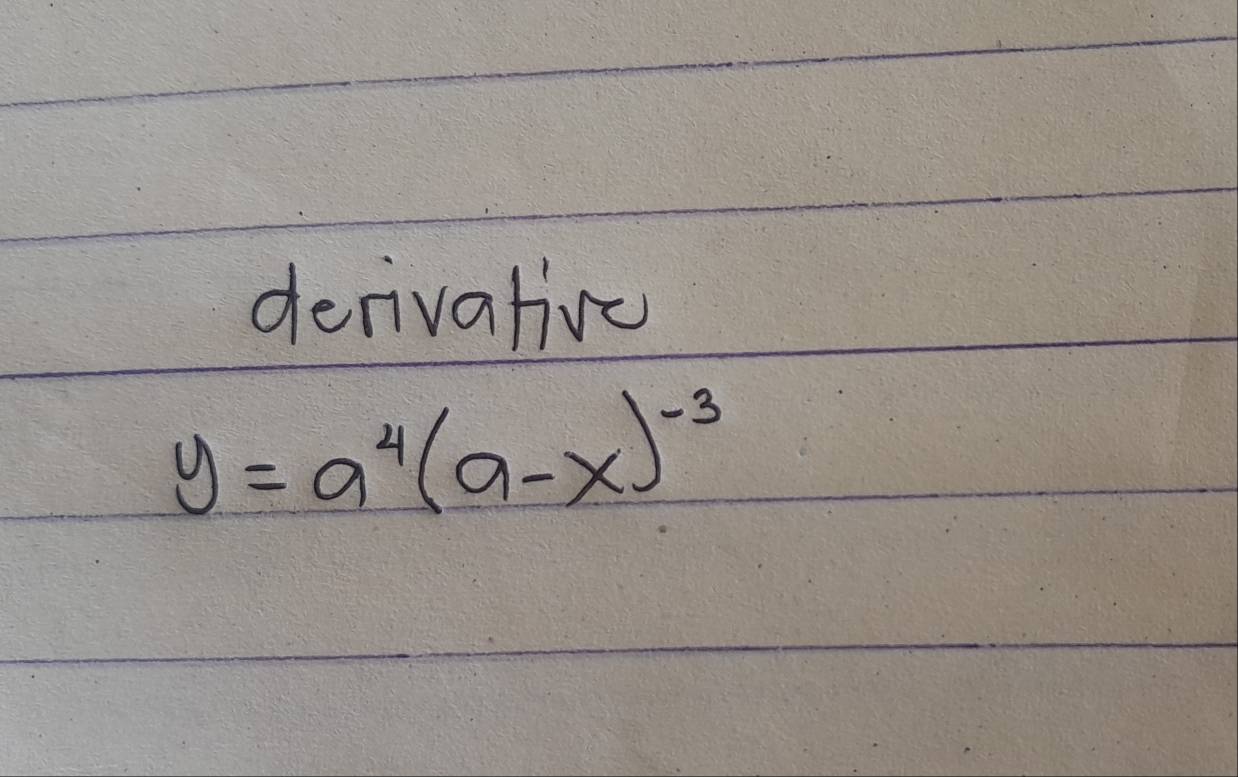 derivative
y = a⁴(a-x)⁻³